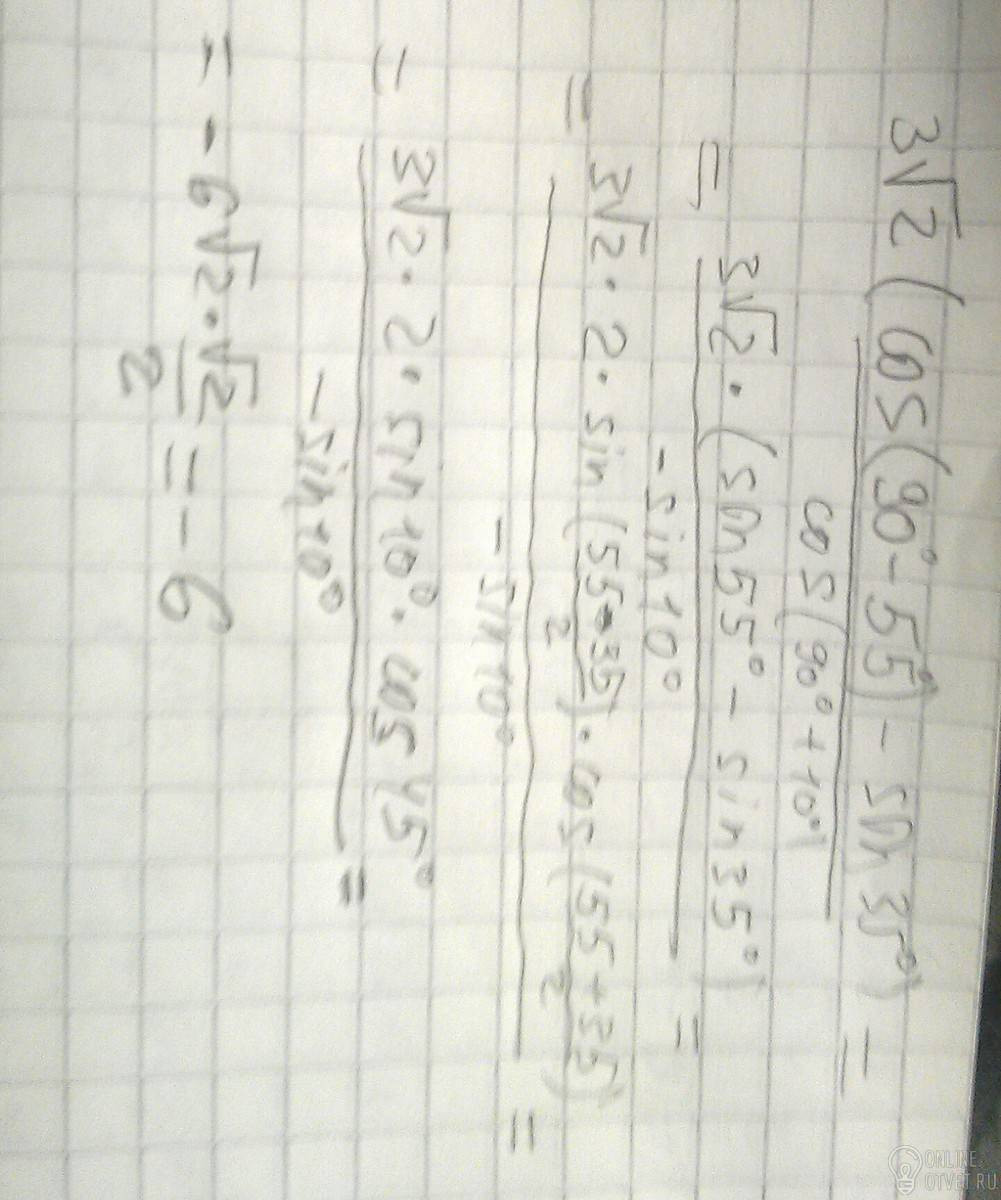 3√2(cos(90°-55°) - sin 35°) =
cos(90°+10°)
= 3√2·(sin55° - sin35°) =
-sin10°
= 3√2·2·sin(55-35)·cos(55+35) =
2 2
-sin10°
= 3√2·2·sin10°·cos45° =
-sin10°
= -6√2·√2 = -6
2
ONLINE.
OTVET.RU